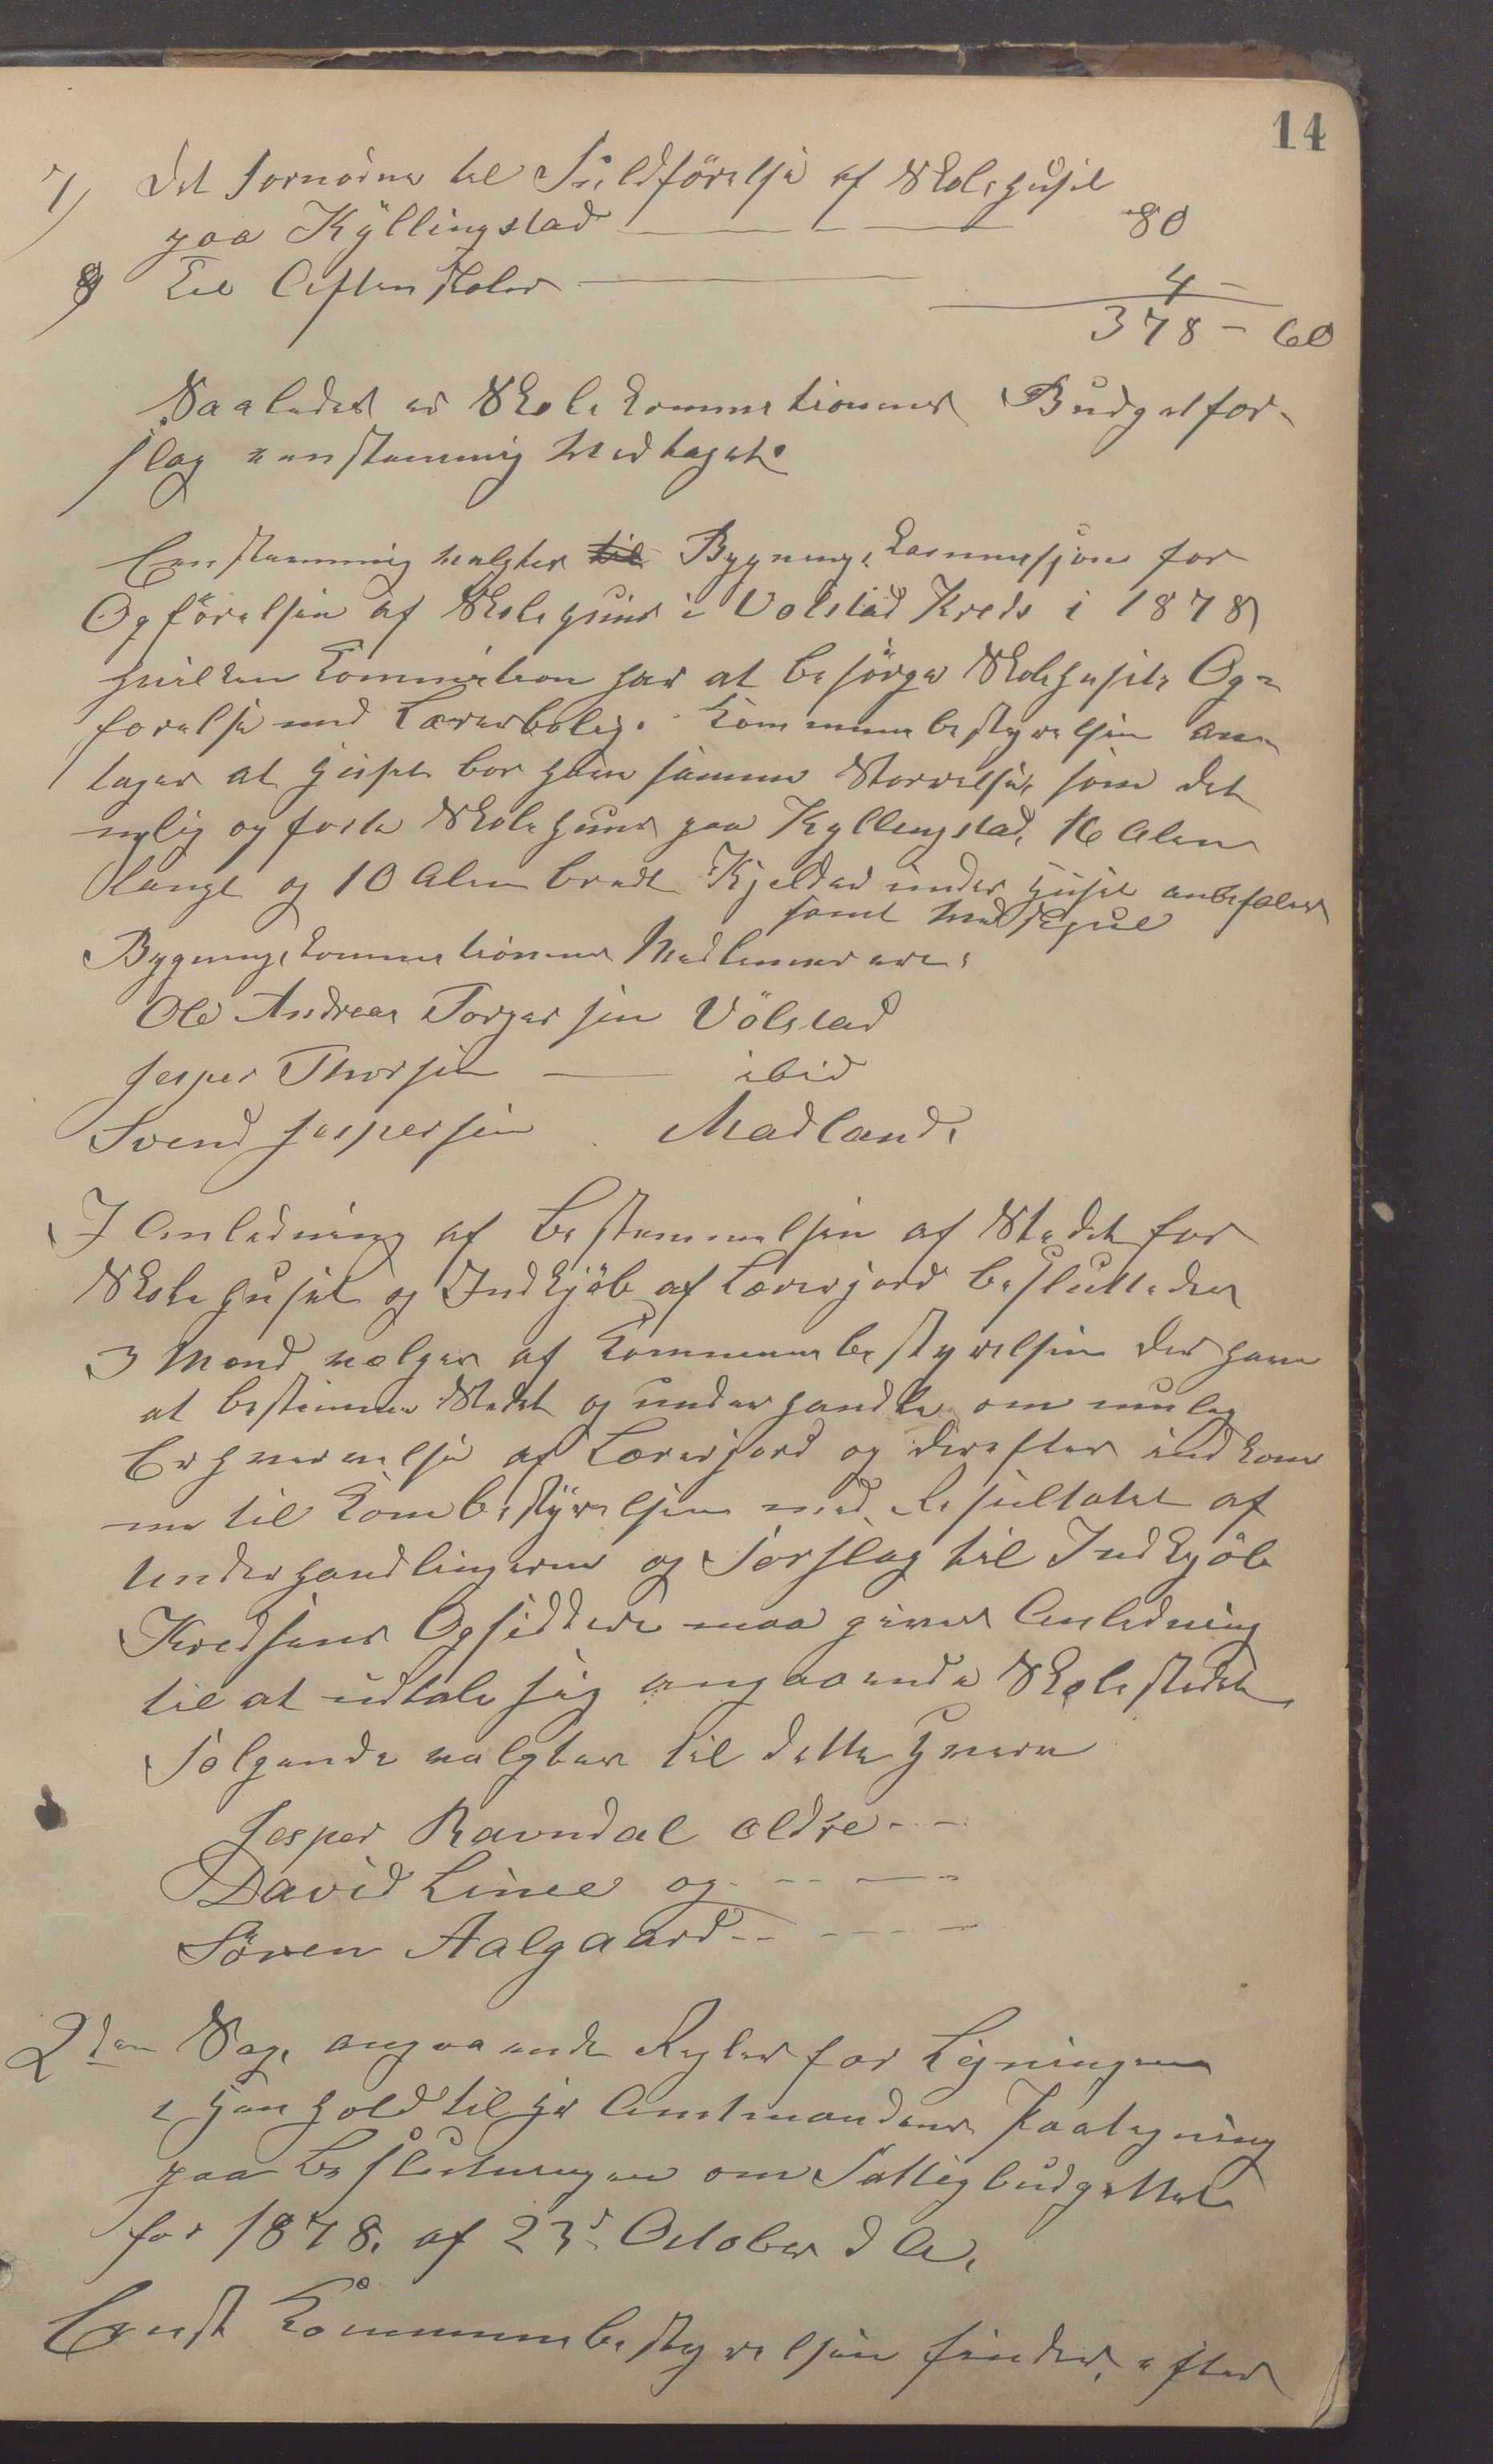 14
7/ Det fornødne til Fuldförelse af Skolehuset
paa Kyllingstad 80
8 Til Aftenskoler 4 -
378 - 60
Saaledes er Skolekommissionens Budgetfor-
slag eenstemmig vedtaget.
Eenstemmig valgtes til Bygningskommisjon for
Opförelsen af Skolehuus i Volstad Kreds i 1878
hvilken Kommission har at besörge Skolehusets Op-
forelse med Lærerbolig. Kommunebestyrelsen an-
tager at huset bør have samme Størrelse, som det
nylig opførte Skolehuus paa Kyllingstad, 16 Alen
langt og 10 Alen bredt Kjelder under Huset anbefales
samt Vedskjul
Bygningskommissionens Medlemmer ere:
Ole Andreas Torgersen Völstad
Jesper Thorsen ibid
Svend Jespersen Madland.
I Anledning af Bestemmelsen af Stedet for
Skolehuset og Indkjöb af Lærerjord besluttedes
3 Mænd vælges af Kommunebestyrelsen der have
at bestemme Stedet og underhandle om mulig
Erhvervelse af Lærerjord og derefter indkom
me til Kombestyrelsen med Resultatet af
Underhandlingerne og Forslag til Indkjöb
Kredsens Opsiddere maa gives Anledning
til at udtale sig angaaende Skolestedet
Følgende valgtes til dette Hverv
Jesper Ravndal ældre
David Limee og
Sören Aalgaard
2den Sag, angaaende Regler for Ligningen
i Henhold til Hr Amtmandens Paategning
paa Beslutningen om Fattigbudgettet
for 1878. af 23d October d A.
Eenst Kommunebestyrelsen finder, efter